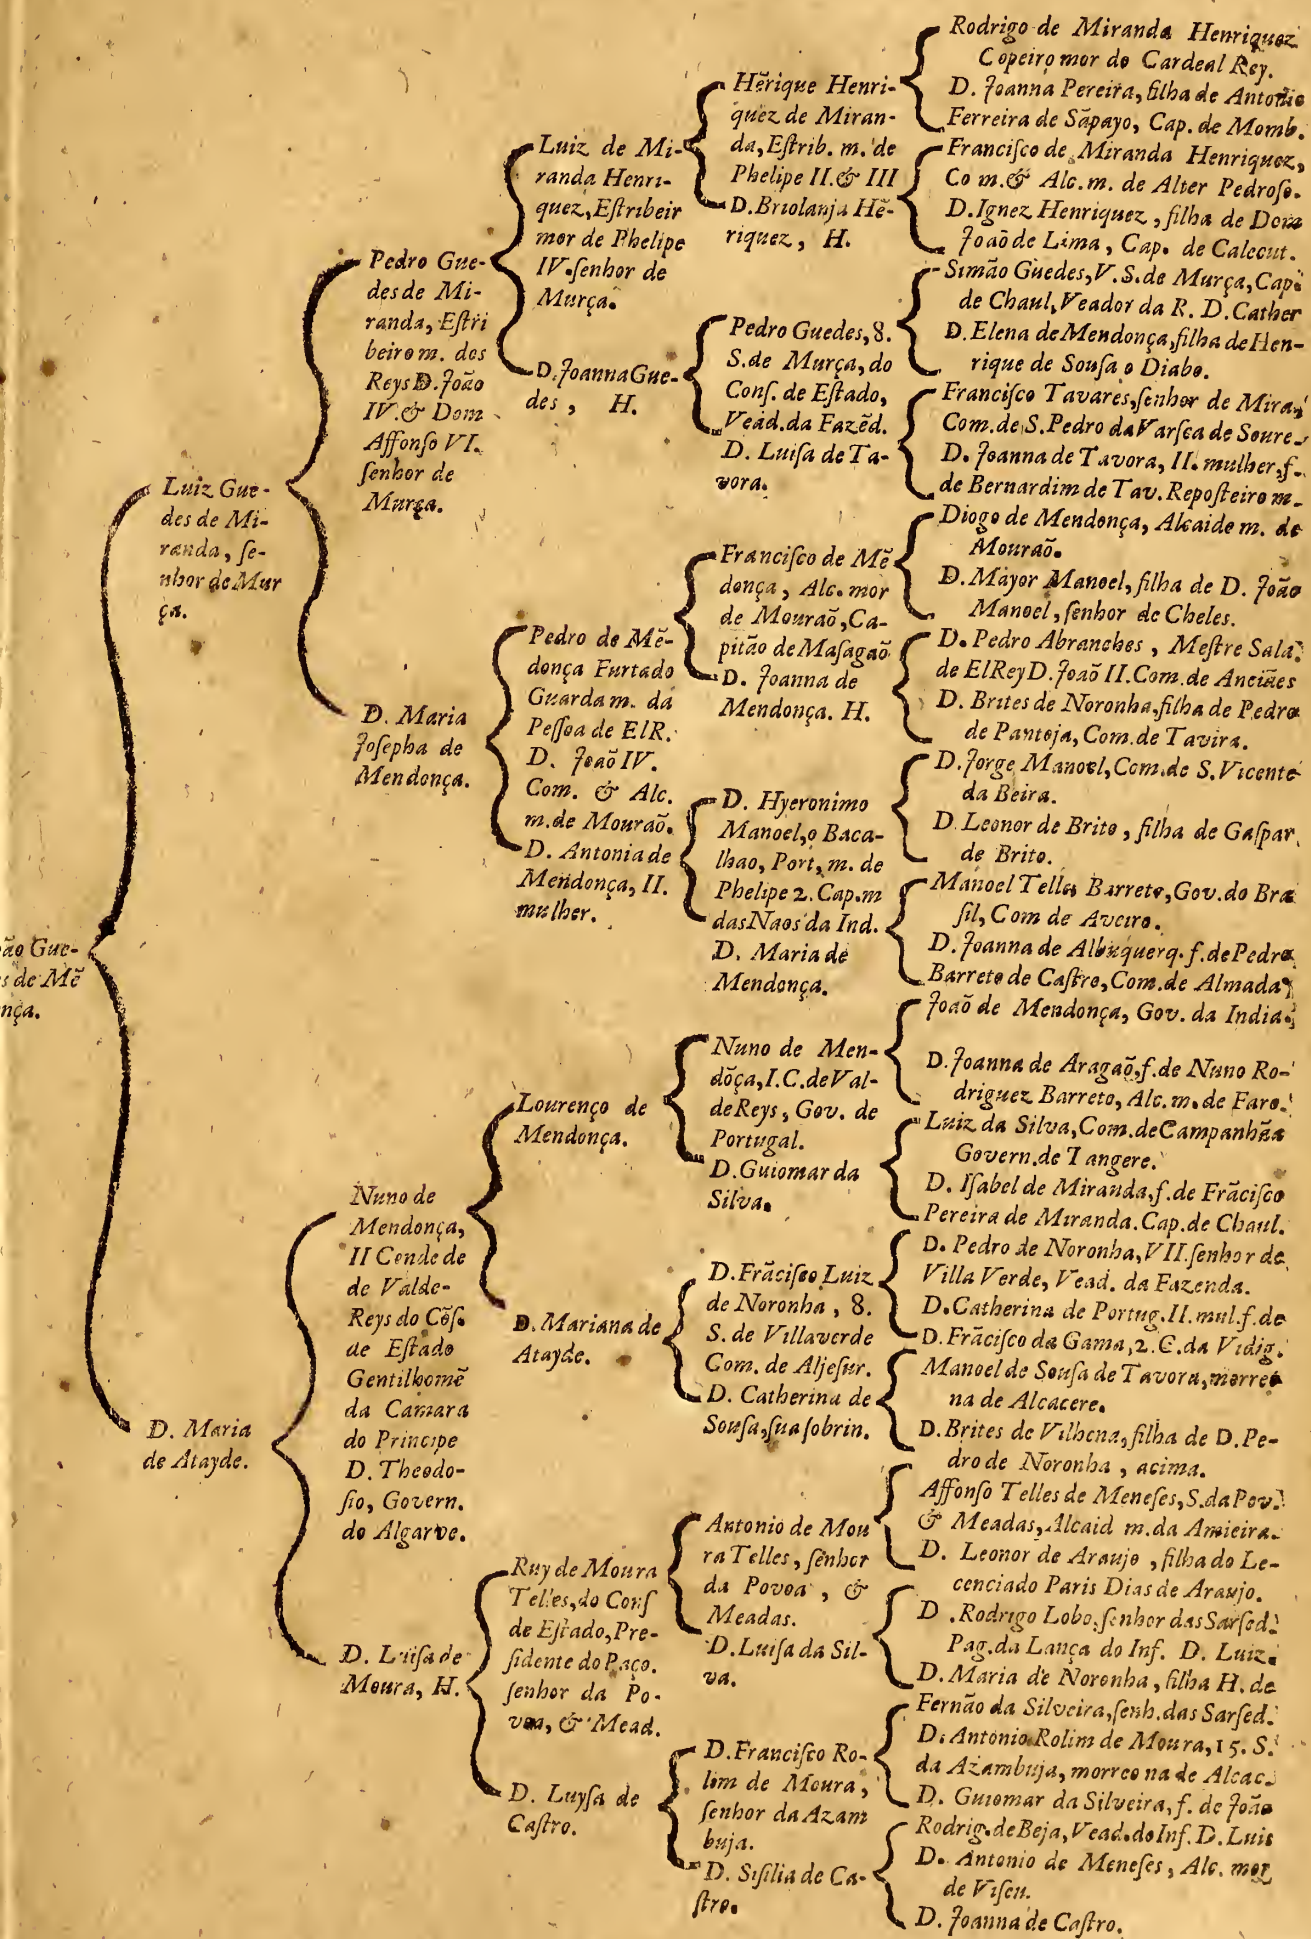 ão Gue-
s de Mẽ
nça.
Luiz Gue-
des de Mi-
randa, ſe-
nhor de Mur
ça.
D. Maria
de Atayde.
Pedro Gue-
des de Mi-
randa, Eſtri
beiro m. dos
Reys D. João
IV. & Dom
Affonſo VI.
ſenhor de
Murça.
D. Maria
Joſepha de
Mendonça.
Nuno de
Mendonça,
II Conde de
de Valde-
Reys do Cõſ.
de Eſtado
Gentilhomẽ
da Camara
do Principe
D. Theodo-
ſio, Govern.
do Algarve.
D. Luiſa de
Moura, H.
Luiz de Mi-
randa Henri-
quez, Eſtribeir
mor de Phelipe
IV. ſenhor de
Murça.
D. Joanna Gue-
des, H.
Pedro de Mẽ-
donça Furtado
Guarda m. da
Peſſoa de ElR.
D. Joaõ IV.
Com. & Alc.
m. de Mouraõ.
D. Antonia de
Mendonça, II.
mulher.
Lourenço de
Mendonça.
D. Mariana de
Atayde.
Ruy de Moura
Telles, do Conſ
de Eſtado, Pre-
ſidente do Paço.
ſenhor da Po-
voa, & Mead.
D. Luyſa de
Caſtro.
Hẽrique Henri-
quez de Miran-
da, Eſtrib. m. de
Phelipe II. & III
D. Briolanja Hẽ-
riquez, H.
Pedro Guedes, 8.
S. de Murça, do
Conſ. de Eſtado,
Vead. da Fazẽd.
D. Luiſa de Ta-
vora.
Franciſco de Mẽ
donça, Alc. mor
de Mouraõ, Ca-
pitão de Maſagaõ
D. Joanna de
Mendonça. H.
D. Hyeronimo
Manoel, o Baca-
lhao, Port. m. de
Phelipe 2. Cap. m
das Naos da Ind.
D. Maria de
Mendonça.
Nuno de Men-
dõça, I. C. de Val-
de Reys, Gov. de
Portugal.
D. Guiomar da
Silva.
D. Frãciſco Luiz
de Noronha, 8.
S. de Villaverde
Com. de Aljeſur.
D. Catherina de
Souſa, ſua ſobrin.
Antonio de Mou
ra Telles, ſenhor
da Povoa, &
Meadas.
D. Luiſa da Sil-
va.
D. Franciſco Ro-
lim de Moura,
ſenhor da Azam
buja.
D. Siſilia de Ca-
ſtro.
Rodrigo de Miranda Henriquez
Copeiro mor do Cardeal Rey.
D. Joanna Pereira, filha de Antonio
Ferreira de Sãpayo, Cap. de Momb.
Franciſco de Miranda Henriquez,
Com. & Alc. m. de Alter Pedroſo.
D. Ignez Henriquez, filha de Dom
Joaõ de Lima, Cap. de Calecut.
Simão Guedes, V. S. de Murça, Cap.
de Chaul, Veador da R. D. Cather
D. Elena de Mendonça, filha de Hen-
rique de Souſa o Diabo.
Franciſco Tavares, ſenhor de Mira,
Com. de S. Pedro da Varſea de Soure.
D. Joanna de Tavora, II. mulher, f.
de Bernardim de Tav. Repoſteiro m.
Diogo de Mendonça, Alcaide m. de
Mouraõ.
D. Mayor Manoel, filha de D. João
Manoel, ſenhor de Cheles.
D. Pedro Abranches, Meſtre Sala
de ElRey D. Joaõ II. Com. de Anciães
D. Brites de Noronha, filha de Pedro
de Pantoja, Com. de Tavira.
D. Jorge Manoel, Com. de S. Vicente
da Beira.
D. Leonor de Brito, filha de Gaſpar
de Brito.
Manoel Telles Barreto, Gov. do Bra
ſil, Com de Aveiro.
D. Joanna de Albuquerq. f. de Pedro
Barreto de Caſtro, Com. de Almada
Joaõ de Mendonça, Gov. da India.
D. Joanna de Aragaõ, f. de Nuno Ro-
driguez Barreto, Alc. m. de Faro.
Luiz da Silva, Com. de Campanhãa
Govern. de Tangere.
D. Iſabel de Miranda, f. de Frãciſco
Pereira de Miranda. Cap. de Chaul.
D. Pedro de Noronha, VII. ſenhor de
Villa Verde, Vead. da Fazenda.
D. Catherina de Portug. II. mul. f. de
D. Frãciſco da Gama, 2. C. da Vidig.
Manoel de Souſa de Tavora, morreo
na de Alcacere.
D. Brites de Vilhena, filha de D. Pe-
dro de Noronha, acima.
Affonſo Telles de Meneſes, S. da Pov.
& Meadas, Alcaid m. da Amieira.
D. Leonor de Araujo, filha do Le-
cenciado Paris Dias de Araujo.
D. Rodrigo Lobo, ſenhor das Sarſed.
Pag. da Lança do Inf. D. Luiz.
D. Maria de Noronha, filha H. de
Fernão da Silveira, ſenh. das Sarſed.
D. Antonio Rolim de Moura, 15. S.
da Azambuja, morreo na de Alcac.
D. Guiomar da Silveira, f. de João
Rodrig. de Beja, Vead. do Inf. D. Luis
D. Antonio de Meneſes, Alc. mor
de Viſeu.
D. Joanna de Caſtro.